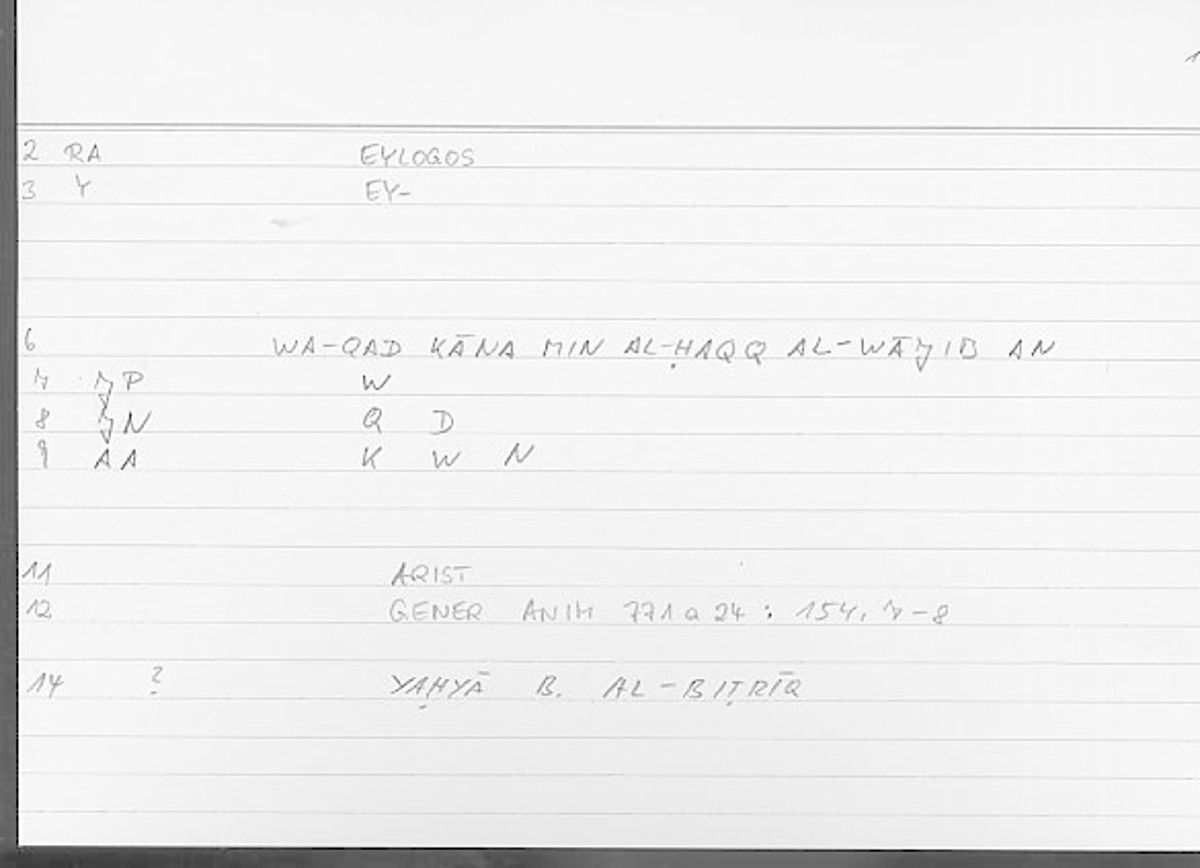 1
2 RA EYLOGOS
3 Y EY-
6 WA-QAD KĀNA MIN AL-ḤAQQ AL-WĀJIB AN
7 JP W
8 JN Q D
9 AA K W N
11 ARIST
12 GENER ANIM 771a24: 154,7-8
14 ? YAḤYĀ B. AL-BIṬRĪQ